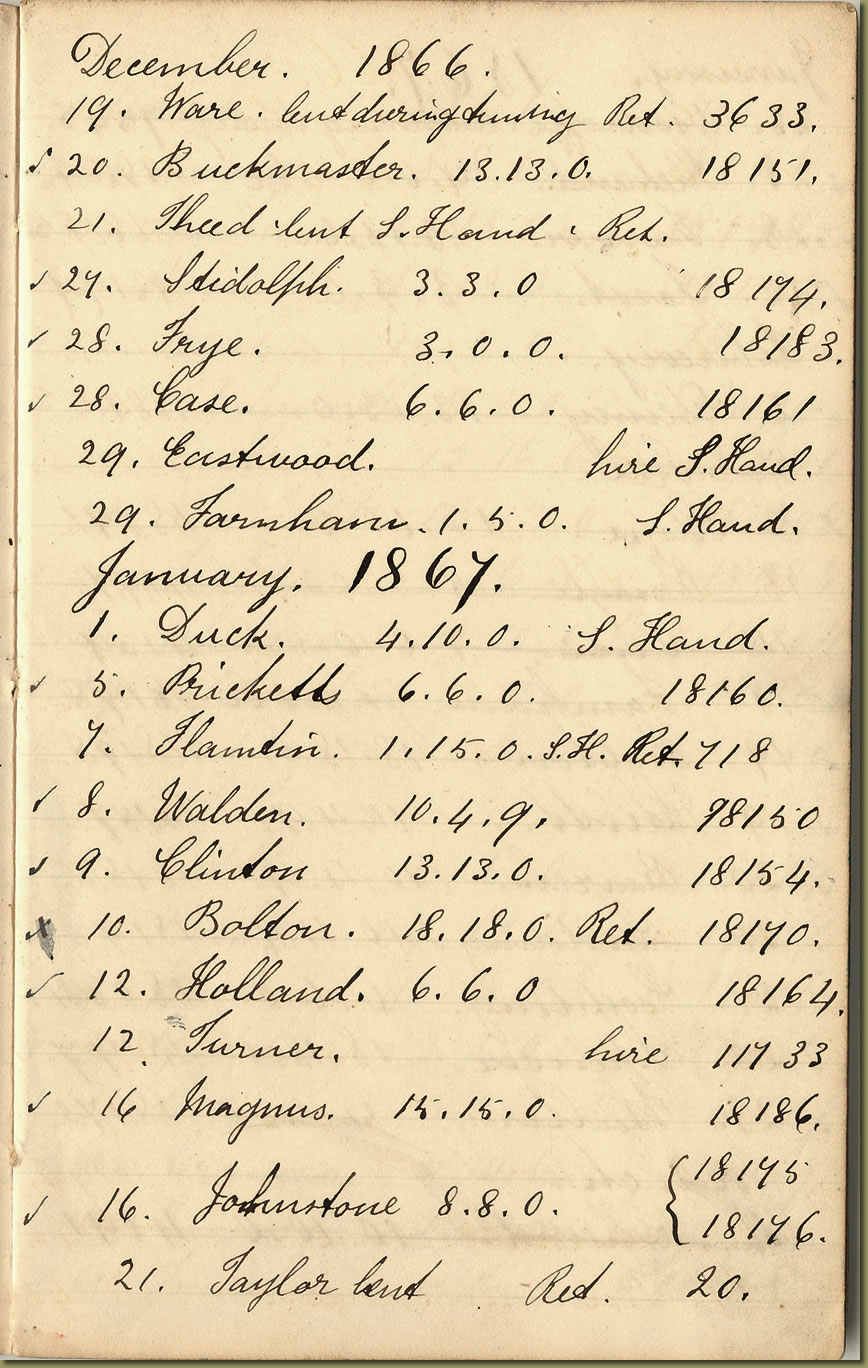 December. 1866.
19. Ware. lent during tuning Ret. 3633.
✓ 20. Buckmaster. 13.13.0. 18151.
21. Theed lent S. Hand. Ret.
✓ 27. Stidolph. 3.3.0 18174.
✓ 28. Frye. 3.0.0. 18183.
✓ 28. Case. 6.6.0. 18161
29. Eastwood. hire S. Hand.
29. Farnham. 1.5.0. S. Hand.
January. 1867.
1. Duck. 4.10.0. S. Hand.
✓ 5. Pricketts 6.6.0. 18160.
7. Flamtin. 1.15.0. S.H. Ret. 718
✓ 8. Walden. 10.4.9. 18150
✓ 9. Clinton 13.13.0. 18154.
x 10. Bolton. 18.18.0. Ret. 18170.
✓ 12. Holland. 6.6.0 18164.
12. Turner. hire 11733
✓ 16 Magnus. 15.15.0. 18186.
✓ 16. Johnstone 8.8.0. { 18175
18176.
21. Taylor lent Ret. 20.